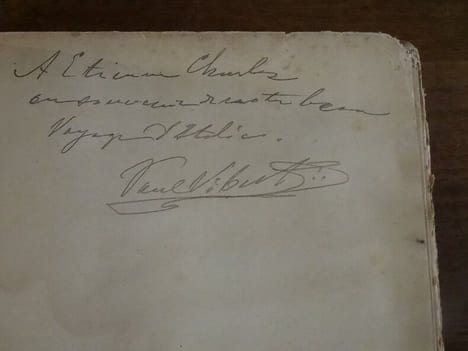 A Etienne Charles
en souvenir de notre beau
Voyage d'Italie.
Paul Vibert